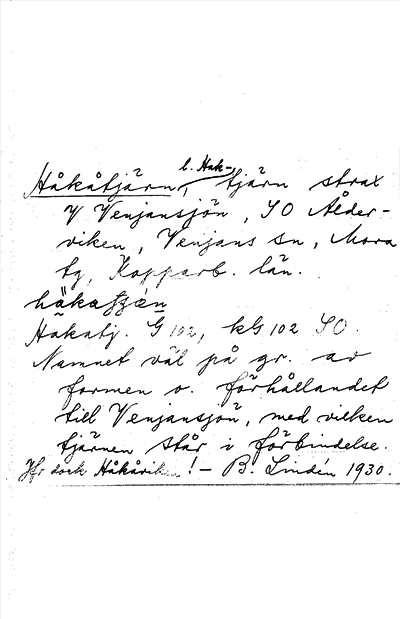 l. Hak-
Håkåtjärn, tjärn strax
V Venjansjön, SO Ålder-
viken, Venjans sn, Mora
tg, Kopparb. län.
Håkåtj. G 102, kG 102 SO.
Namnet väl på gr. av
formen o. förhållandet
till Venjansjön, med vilken
tjärnen står i förbindelse.
Jfr dock Håkåviken! – B. Lindén 1930.